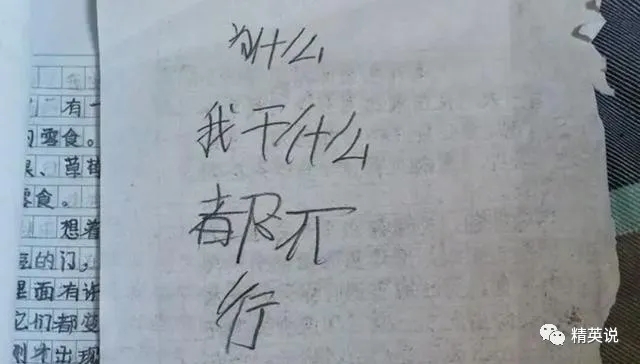 为什么
我干什么
都不
行
有一
零食。
、草莓
零食。
想着
的门，
里面有许
它们都变
刚才出现
精英说